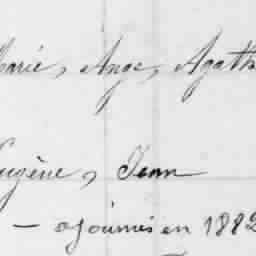 Marie, Ange, Agath
Eugène, Jean
— ajournés en 1882